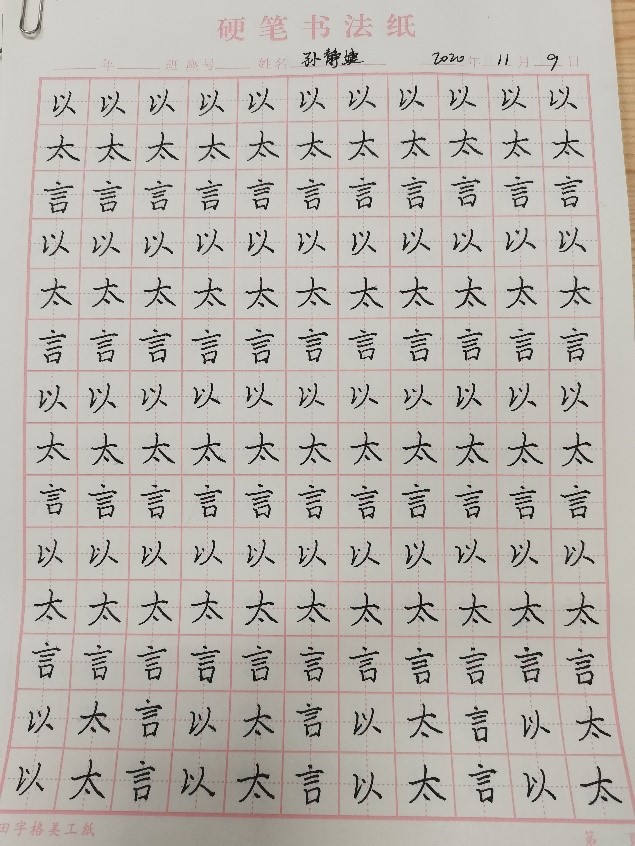 硬笔书法纸
年 班 座号 姓名 孙静婕 2020年11月9日
以以以以以以以以以以以
太太太太太太太太太太太
言言言言言言言言言言言
以以以以以以以以以以以
太太太太太太太太太太太
言言言言言言言言言言言
以以以以以以以以以以以
太太太太太太太太太太太
言言言言言言言言言言言
以以以以以以以以以以以
太太太太太太太太太太太
言言言言言言言言言言言
以太言以太言以太言以太
以太言以太言以太言以太
田字格美工纸 第